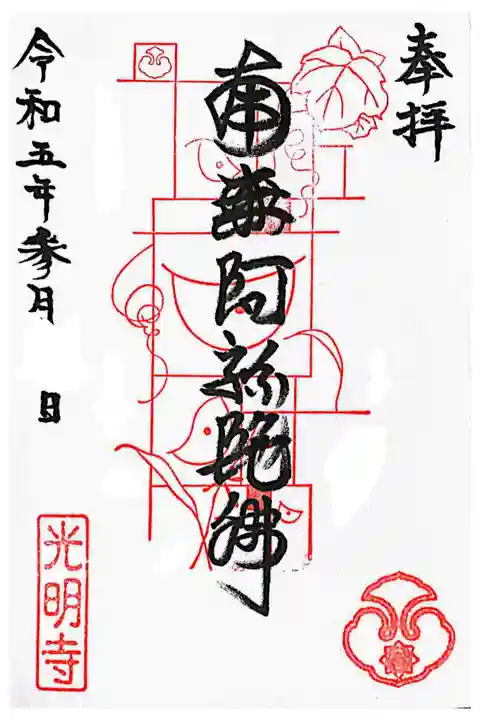 奉拝
南無阿弥陀佛
令和五年参月 日
光明寺